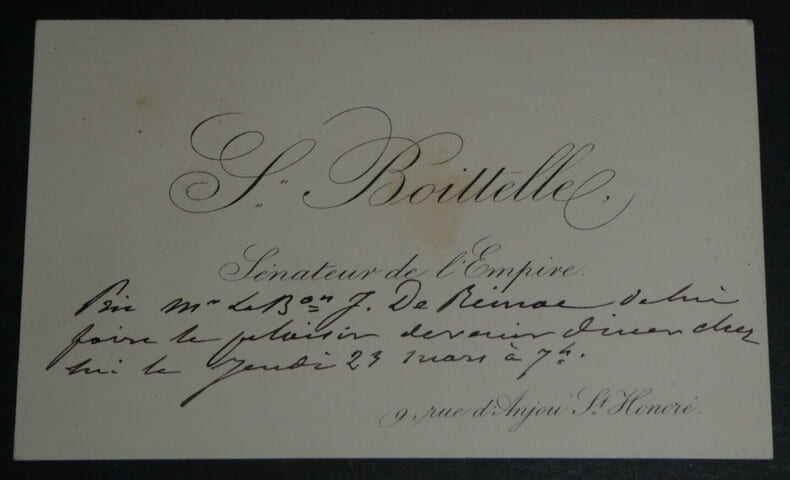 S. Boittelle,
Sénateur de l'Empire.
Prie Mr Le Bon J. De
faire le plaisir de venir diner chez
lui le Jeudi 23 mars à 7h.
9, rue d'Anjou St Honoré.